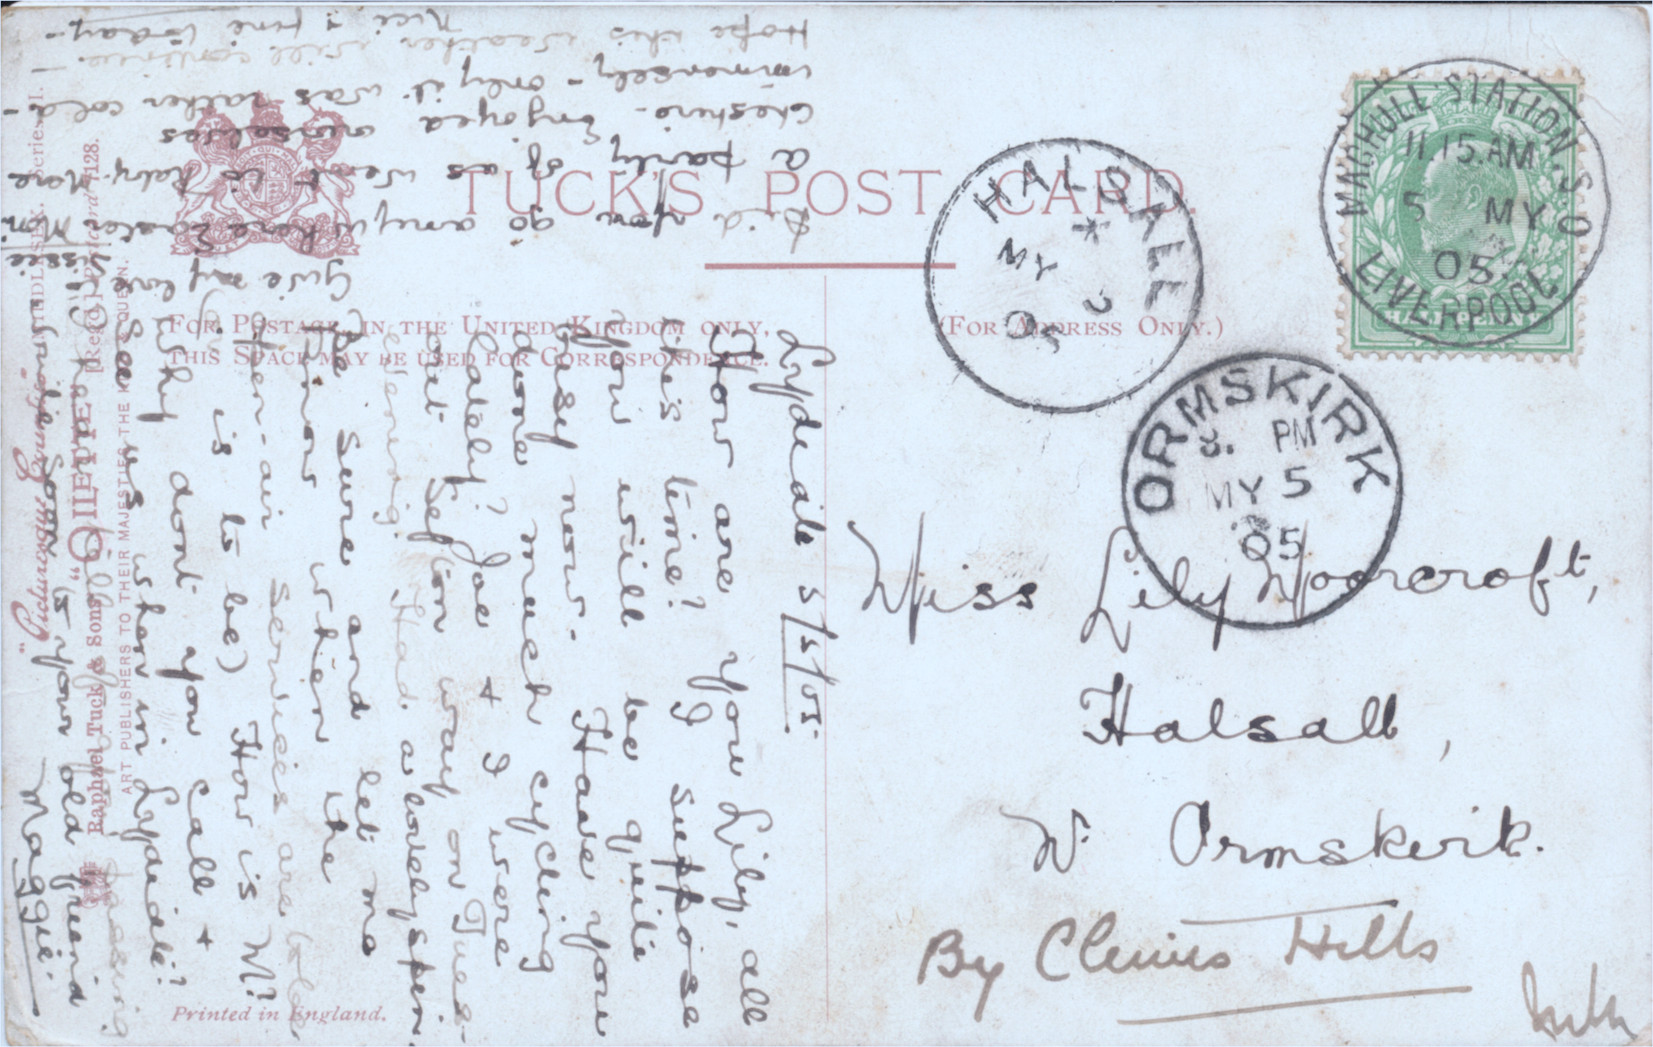 TUCK'S POST CARD.
FOR POSTAGE IN THE UNITED KINGDOM ONLY,
THIS SPACE MAY BE USED FOR CORRESPONDENCE.
(FOR ADDRESS ONLY.)
MAGHULL STATION. S.O
11 15. AM
5 MY
05
LIVERPOOL
HALFPENNY
HALSALL
*
MY 5
05
ORMSKIRK
8. PM
MY 5
05
Miss Lily Moorcroft,
Halsall,
Nr Ormskirk.
By Clenics Hills
Lydiate 5/5/05.
How are you Lily, all
this time? I suppose
you will be quite
busy now. Have you
done much cycling
lately? Joe & I were
out Sefton way on Tues-
evening. Had a lovely spin.
Be sure and let me
know when the
open-air services are (old
is to be) How is M?
Why dont you call &
see us when in Lydiate?
is your old friend
Maggie.
Give my love
Did you go anywhere Easter Mon
a party of us went to Raby Mere
Cheshire. Enjoyed ourselves
immensely - only it was rather cold -
Hope this weather will continue -
Nice & fine today -
"Picturesque
Raphael Tuck & Sons' "OILETTE" [Regd.] 7128.
ART PUBLISHERS TO THEIR MAJESTIES THE KING & QUEEN.
Printed in England.